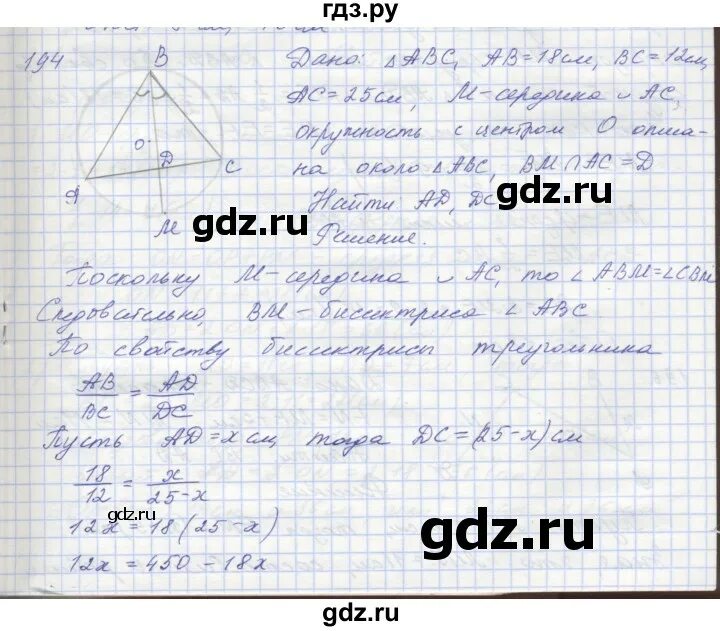 гдз.ру
194
B
O
D
A
C
M
Дано: △ABC, AB=18см, BC=12см,
AC=25см, M-середина ∪ AC,
окружность с центром O описа-
на около △ABC, BM∩AC=D
Найти AD, DC
Решение.
Поскольку M-середина ∪ AC, то ∠ABM=∠CBM
Следовательно, BM-биссектриса ∠ABC
По свойству биссектрисы треугольника
AB/BC = AD/DC
Пусть AD=x см, тогда DC=(25-x) см
18/12 = x/25-x
12x = 18(25-x)
12x = 450 - 18x
gdz.ru
gdz.ru
gdz.ru
gdz.ru
gdz.ru
gdz.ru